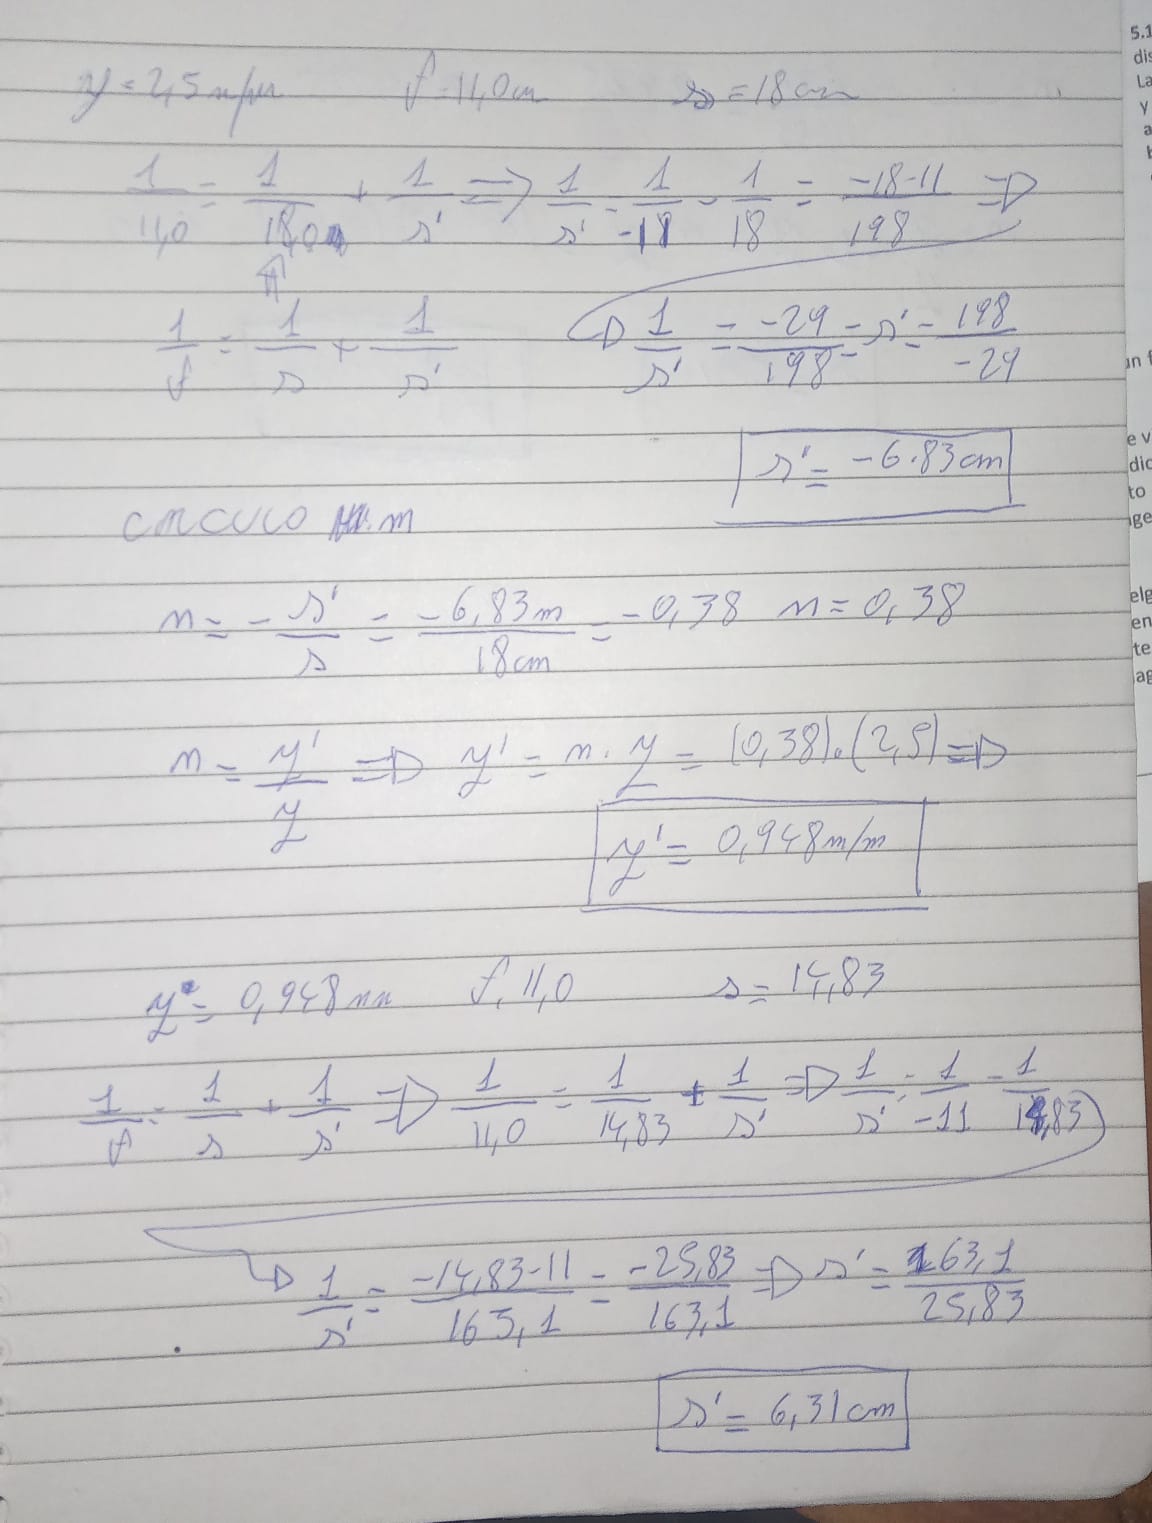 y = 2,5 m/m f = 11,0 cm s = 18 cm
1/11,0 = 1/18,0 + 1/s' => 1/s' = 1/-11 - 1/18 = -18-11/198 =>
1/f = 1/s + 1/s' => 1/s' = -29/198 = s' = 198/-29
s' = -6.83 cm
m
m = - s'/s = -6,83 m/18 cm = -0,38 m = 0,38
m = y'/y => y' = m . y = (0,38).(2,5) =>
y' = 0,948 m/m
y = 0,948 mm f, 11,0 s = 14,83
1/f = 1/s + 1/s' => 1/11,0 = 1/14,83 + 1/s' => 1/s' = 1/-11 - 1/14,83
=> 1/s' = -14,83-11/163,1 = -25,83/163,1 => s' = 163,1/25,83
s' = 6,31 cm
5.1
dis
La
y
a
un f
e v
dic
to
ge
elg
en
te
ag